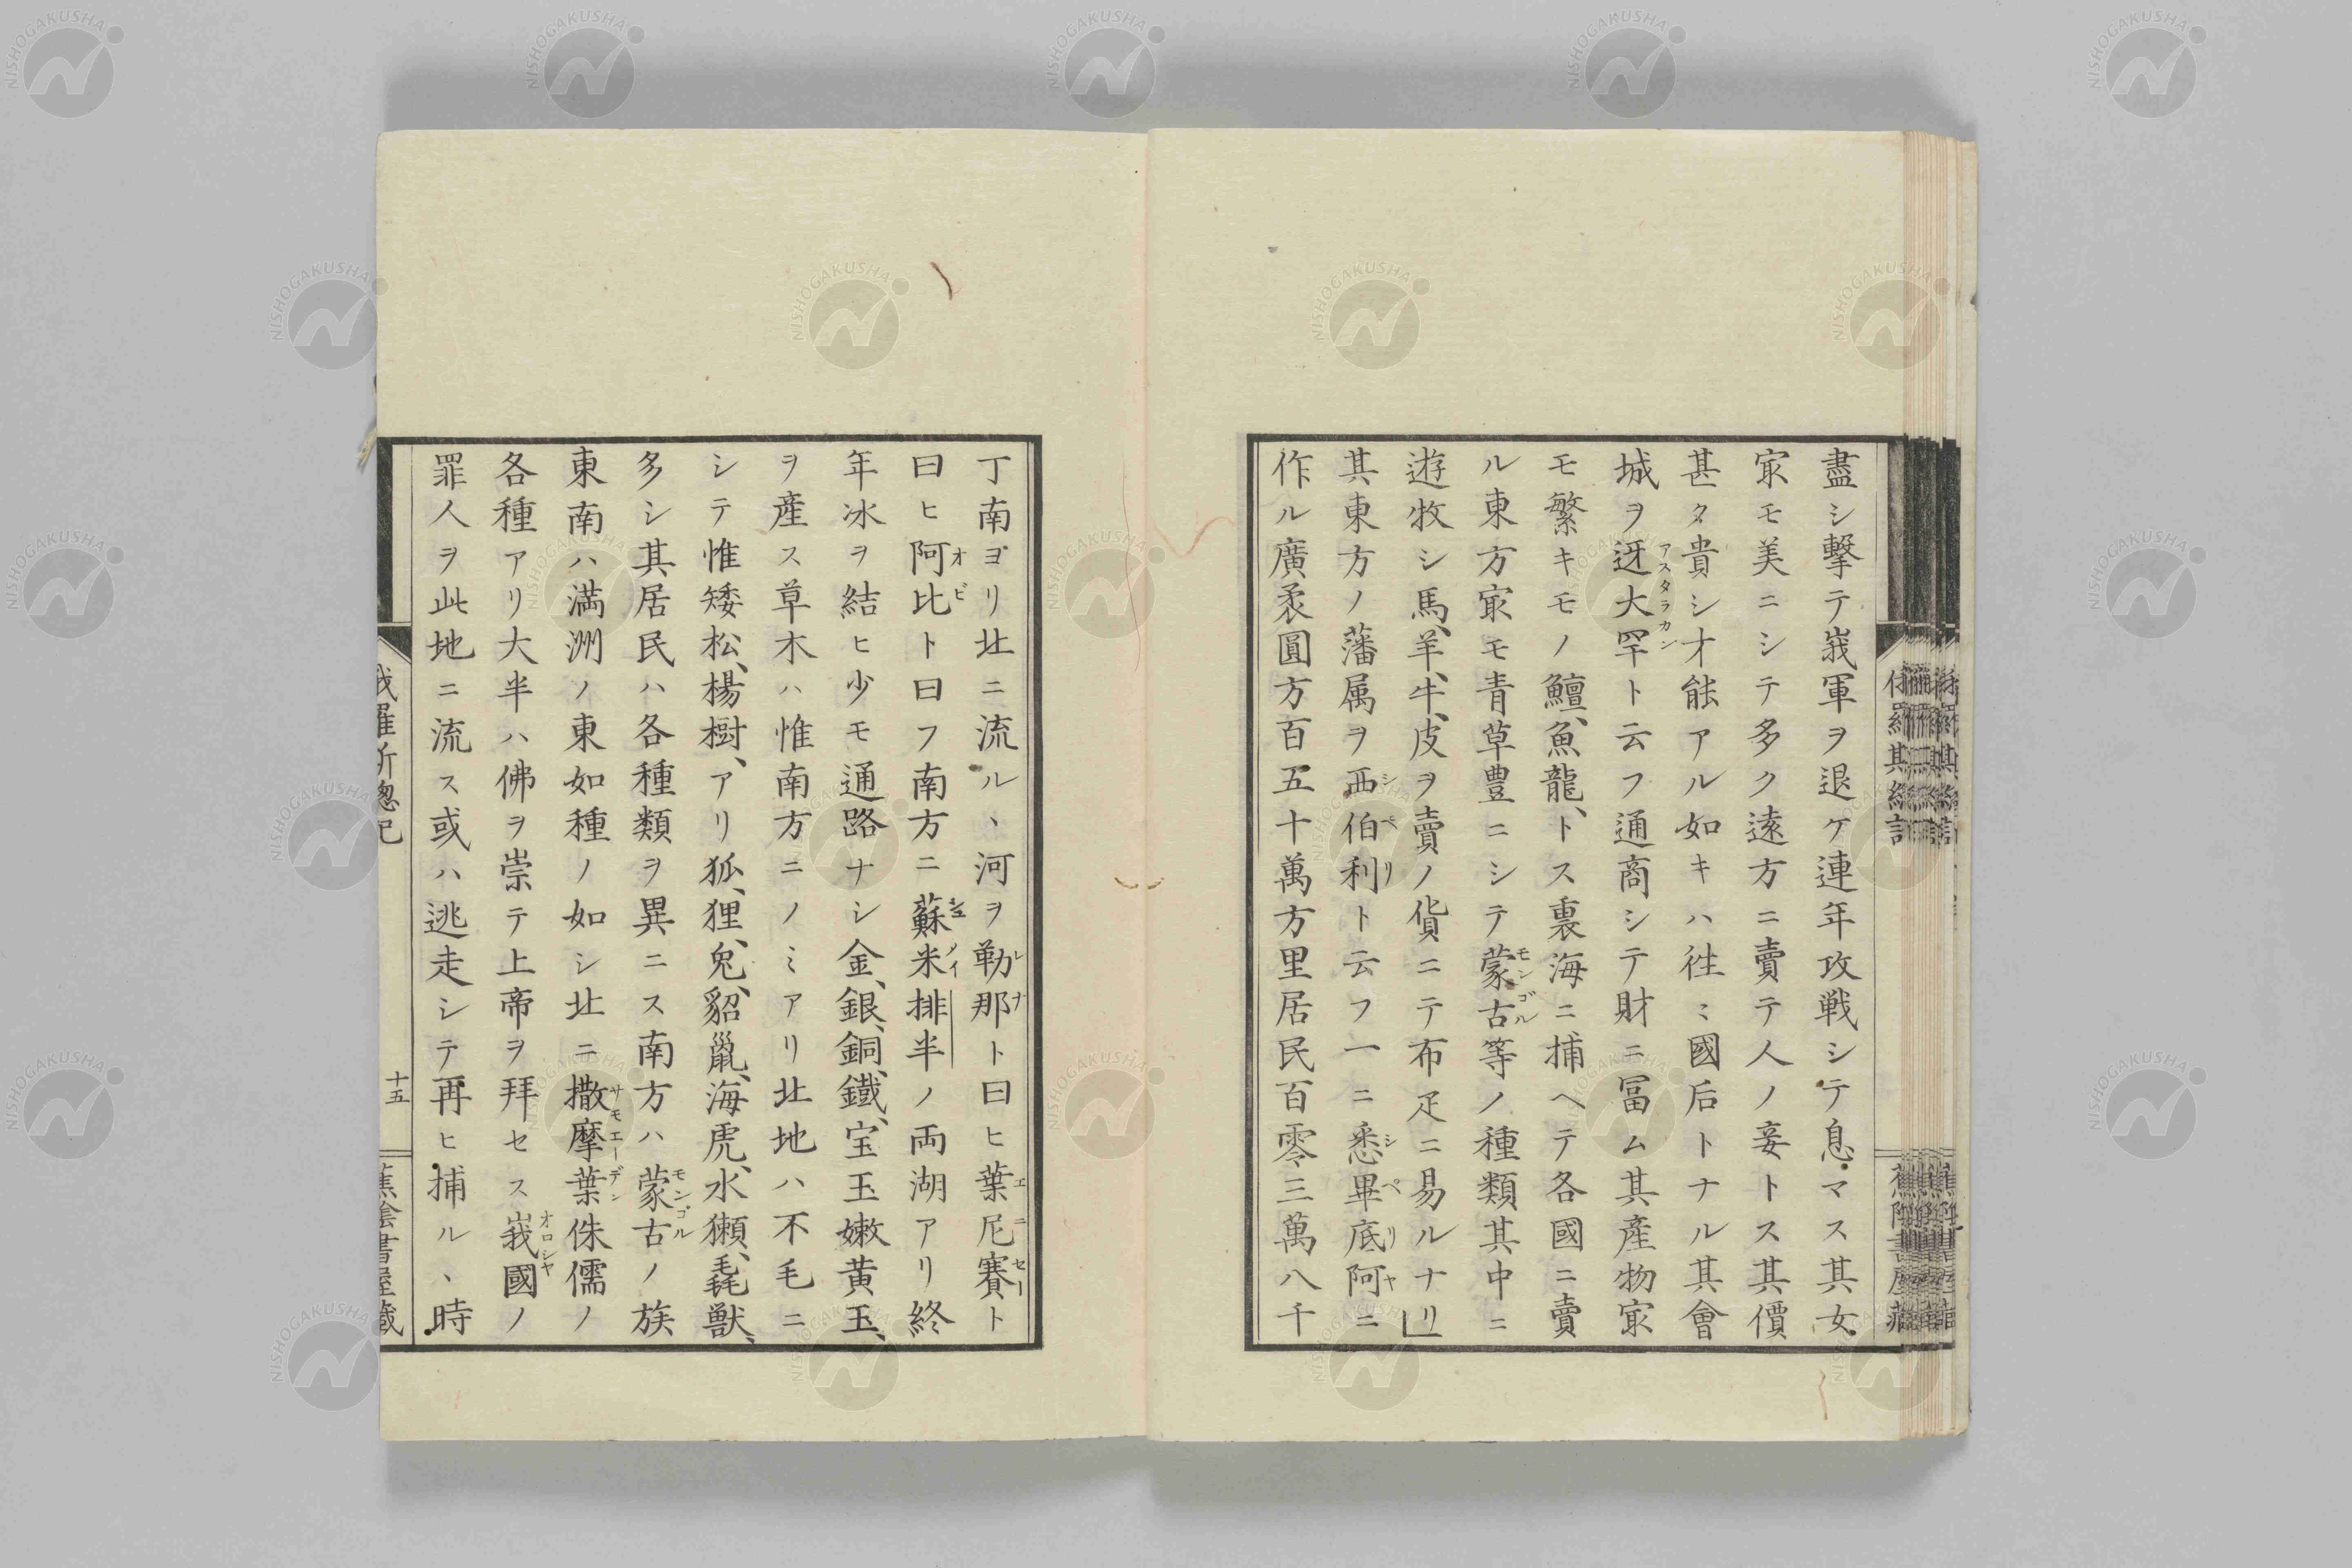 盡シ撃テ峩軍ヲ退ケ連年攻戦シテ息マス其女
㝡モ美ニシテ多ク遠方ニ賣テ人ノ妾トス其價
甚タ貴シ才能アル如キハ徃ミ國后トナル其會
城ヲ迓大罕ト云フ通商シテ財ニ冨ム其産物㝡
アスタラカン
モ繁キモノ鱣、魚龍、トス裏海ニ捕ヘテ各國ニ賣
ル東方㝡モ青草豊ニシテ蒙古等ノ種類其中ニ
モンゴル
遊牧シ馬、羊、牛、皮ヲ賣ノ貨ニテ布疋ニ易ルナリ
其東方ノ藩属ヲ西伯利ト云フ一ニ悉畢底阿ニ
シベリ
シベリヤ
作ル廣袤圓方百五十萬方里居民百零三萬八千
丁南ヨリ北ニ流ルヽ河ヲ勒那ト曰ヒ葉尼賽ト
レナ
エニセー
曰ヒ阿比ト曰フ南方ニ蘇米排半ノ両湖アリ終
オビ
シュメイ
年冰ヲ結ヒ少モ通路ナシ金、銀、銅、鐵、宝玉嫩黄玉、
ヲ産ス草木ハ惟南方ニノミアリ北地ハ不毛ニ
シテ惟矮松、楊樹、アリ狐、狸、兔、貂鼠、海虎、水獺、毳獣、
多シ其居民ハ各種類ヲ異ニス南方ハ蒙古ノ族
モンゴル
東南ハ満洲ノ東如種ノ如シ北ニ撒摩葉侏儒ノ
サモエーデン
各種アリ大半ハ佛ヲ崇テ上帝ヲ拜セス峩國ノ
オロシヤ
罪人ヲ此地ニ流ス或ハ逃走シテ再ヒ捕ルヽ時
峩羅斯總記
十五
蕉陰書屋藏
NISHOGAKUSHA